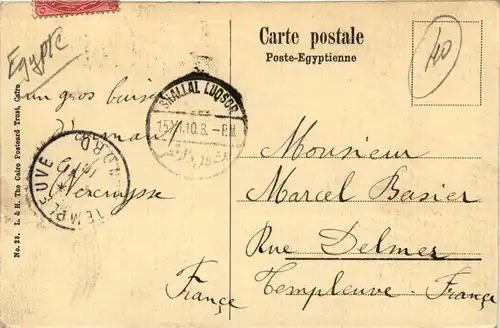 Egypte
Carte postale
Poste-Egyptienne
40
un gros baiser
d'
SHALLAL LUQSOR
15 XI.10.3.-PM
TEMPLEUVE
NORD
Monsieur
Marcel Basier
Rue Delmer
Templeuve. France
France
No. 23. L. & H. The Cairo Postcard Trust, Cairo